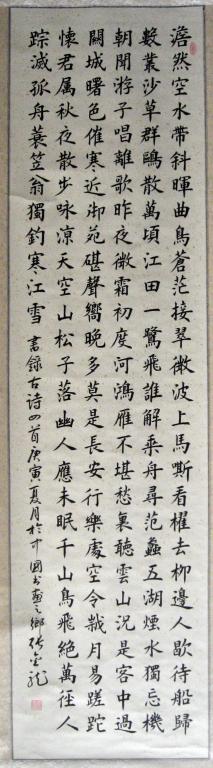 澹然空水帶斜暉曲島蒼茫接翠微波上馬嘶看櫂去柳邊人歇待船歸
數叢沙草群鷗散萬頃江田一鷺飛誰解乘舟尋范蠡五湖煙水獨忘機
朝聞游子唱離歌昨夜微霜初度河鴻雁不堪愁裏聽雲山況是客中過
關城曙色催寒近御苑碪聲嚮晚多莫是長安行樂處空令歲月易蹉跎
懷君属秋夜散步咏涼天空山松子落幽人應未眠千山鳥飛絕萬徑人
踪滅孤舟蓑笠翁獨釣寒江雪 書錄古詩四首庚寅夏月於中國書畫之鄉張金龍